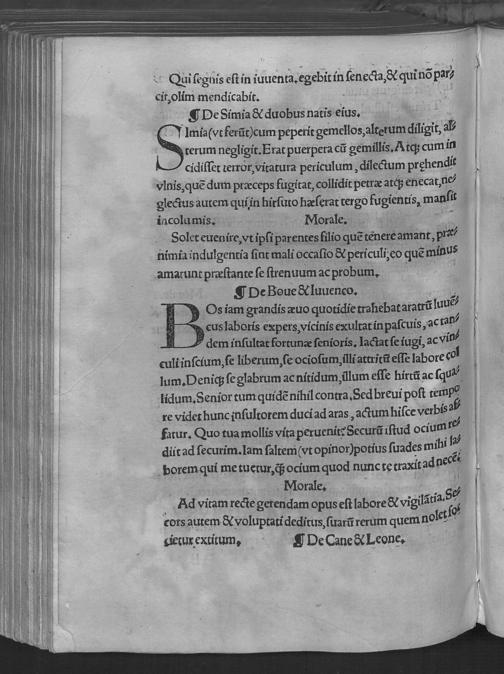 Qui segnis est in iuuenta, egebit in senecta, & qui nō par⸗
cit, olim mendicabit.
¶ De Simia & duobus natis eius.
SImia (vt ferūt) cum peperit gemellos, alterum diligit, al⸗
terum negligit. Erat puerpera cū gemillis. Atq; cum in
cidisset terror, vitatura periculum, dilectum prehendit
vlnis, quē dum præceps fugitat, collidit petræ atq; enecat, ne⸗
glectus autem qui in hirsuto hæserat tergo fugientis, mansit
incolumis. Morale.
Solet euenire, vt ipsi parentes filio quē tenere amant, præ⸗
nimia indulgentia sint mali occasio & periculi; eo quē minus
amarunt præstante se strenuum ac probum.
¶ De Boue & Iuuenco.
BOs iam grandis æuo quotidie trahebat aratrū Iuuē⸗
cus laboris expers, vicinis exultat in pascuis, ac tan⸗
dem insultat fortunæ senioris. Iactat se iugi, ac vin⸗
culi inscium, se liberum, se ociosum, illi attritū esse labore col
lum. Deniq; se glabrum ac nitidum, illum esse hirtū ac squa⸗
lidum. Senior tum quidē nihil contra. Sed breui post tempo
re videt hunc insultorem duci ad aras, actum hisce verbis af⸗
fatur. Quo tua mollis vita peruenit? Securū istud ocium re⸗
diit ad securim. Iam saltem (vt opinor) potius suades mihi la⸗
borem qui me tuetur, q̄ ocium quod nunc te traxit ad necē.
Morale.
Ad vitam recte gerendam opus est labore & vigilātia. Se⸗
cors autem & voluptati deditus, suarū rerum quem nolet so⸗
cietur extitum. ¶ De Cane & Leone.